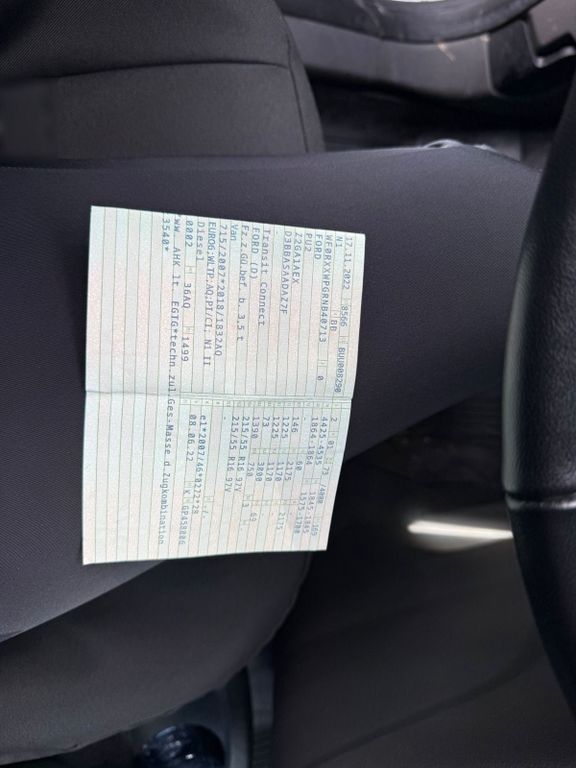 17.11.2022 8566 BUU008290
N1 BB
WF0RXXWPGRNB40713 0
FORD
PU2
Z2GA1AEX
D3BBASAADAZ7F
-
Transit Connect
FORD (D)
Fz.z.Gü.bef. b. 3,5 t
Van
715/2007*2018/1832AQ
EURO6;WLTP;AQ;PI/CI; N1 II
Diesel
0002 36AQ 1499
2 01 73 /4000 169
4425-4535 1845-1845
1864-1864 1575-1700
146 60 - -
2175 - 2175
1225 1170
1225 1170
73 3000 69
1390 750 3
215/55 R16 97V
215/55 R16 97V
-
e1*2007/46*0272*28
08.06.22 K GP458006
*ww. AHK lt. EGTG*techn.zul.Ges.-Masse d.Zugkombination
3540*